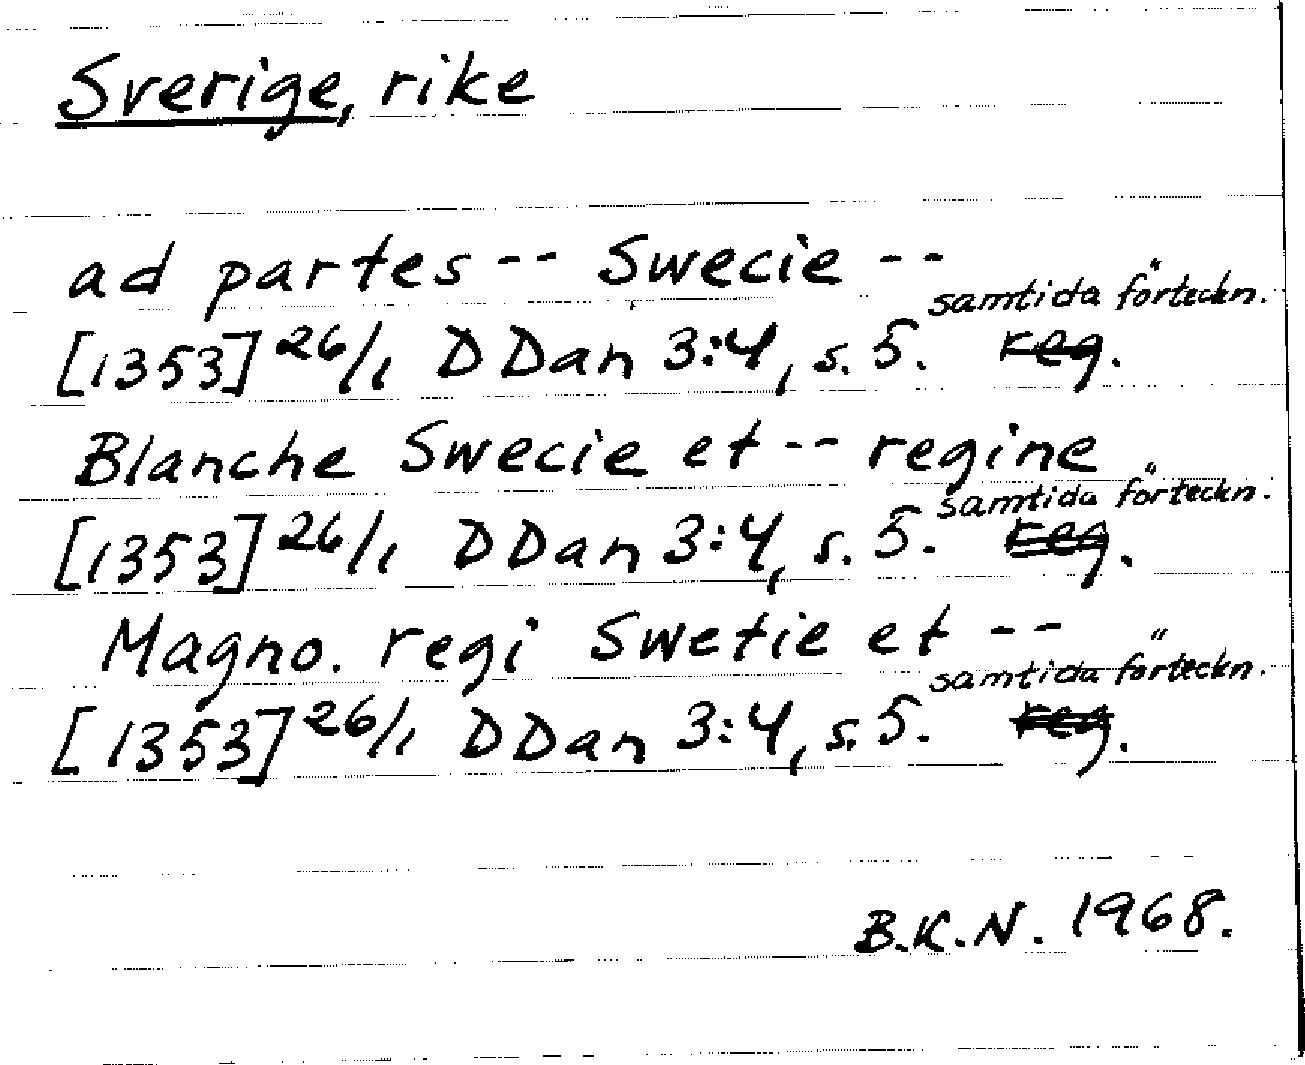 Sverige, rike
ad partes -- Swecie --
samtida förteckn.
[1353] 26/1 DDan 3:4, s. 5. reg.
Blanche Swecie et -- regine
samtida förteckn.
[1353] 26/1 DDan 3:4, s. 5. reg.
Magno. regi Swetie et --
samtida förteckn.
[1353] 26/1 DDan 3:4, s. 5. reg.
B.K.N. 1968.